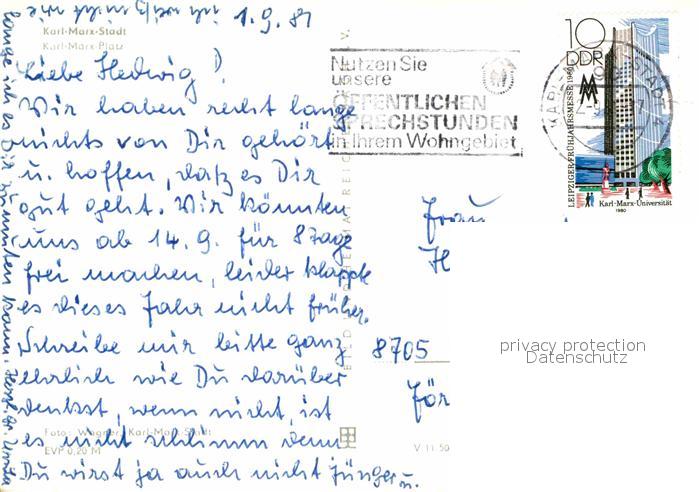 1.9.81
Karl-Marx-Stadt
Karl-Marx-Platz
Liebe Hedwig!
Wir haben recht lange
nichts von Dir gehört
u. hoffen, daß es Dir
gut geht. Wir könnten
uns ab 14.9. für 8 Tage
frei machen, leider klappte
es dieses Jahr nicht früher.
Schreibe mir bitte ganz
ehrlich wie Du darüber
denkst, wenn nicht, ist
es nicht schlimm denn
Du wirst ja auch nicht jünger u.
lange ich es Dir zumuten kann. Herzl. Gr. Ursula
Foto: Wagner, Karl-Marx-Stadt
EVP 0,20 M
V 11 50
Nutzen Sie
unsere
ÖFFENTLICHEN
SPRECHSTUNDEN
in Ihrem Wohngebiet
10
DDR
LEIPZIGER FRÜHJAHRSMESSE 1980
Karl-Marx-Universität
1980
Frau
H
8705
privacy protection
Datenschutz